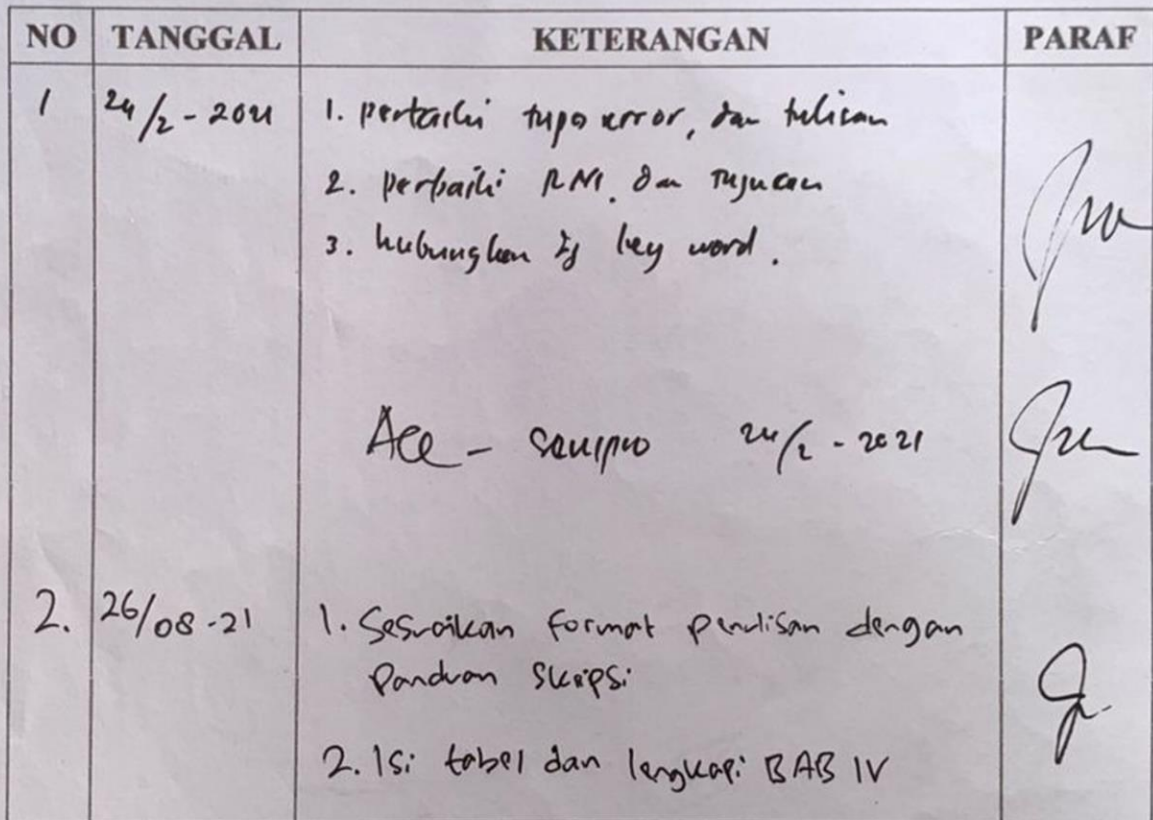 NO TANGGAL KETERANGAN PARAF
1 24/2 - 2021 1. perbaiki typo error, dan tulisan
2. perbaiki RM, dan Tujuan
3. hubungkan dg key word.
Acc - sempro 24/2 - 2021
2. 26/08-21 1. Sesuaikan format penulisan dengan
Panduan Skripsi
2. Isi tabel dan lengkapi BAB IV